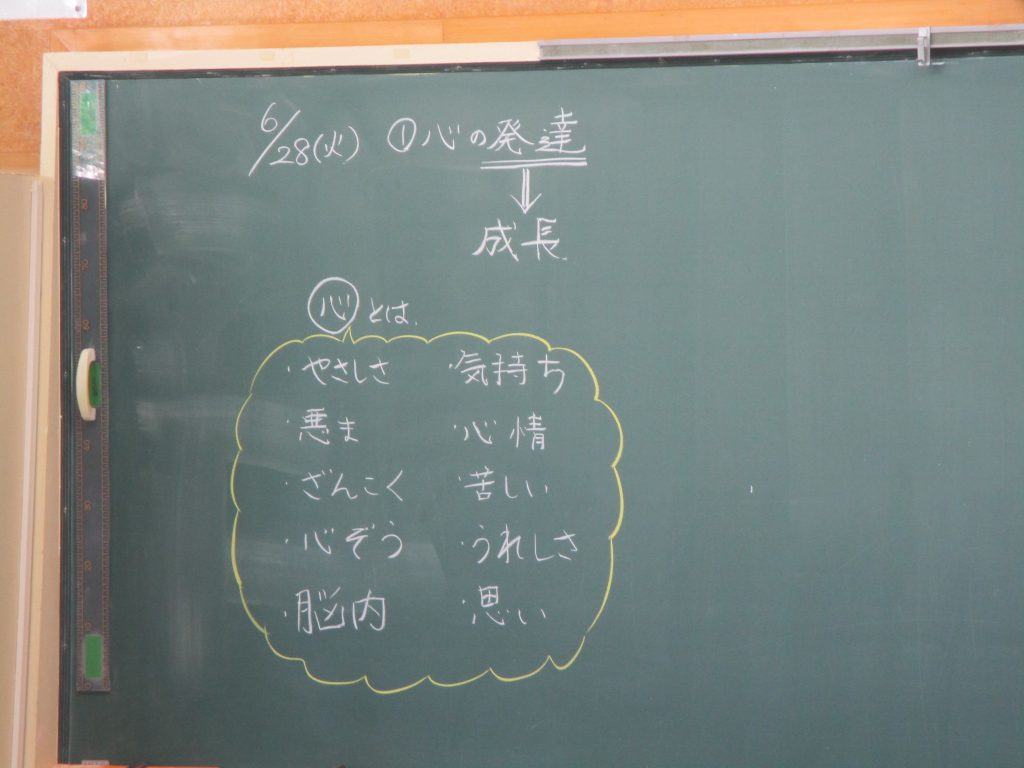 6/28(火) ①心の発達
⇓
成長
心とは、
・やさしさ ・気持ち
・悪ま ・心情
・ざんこく ・苦しい
・心ぞう ・うれしさ
・脳内 ・思い